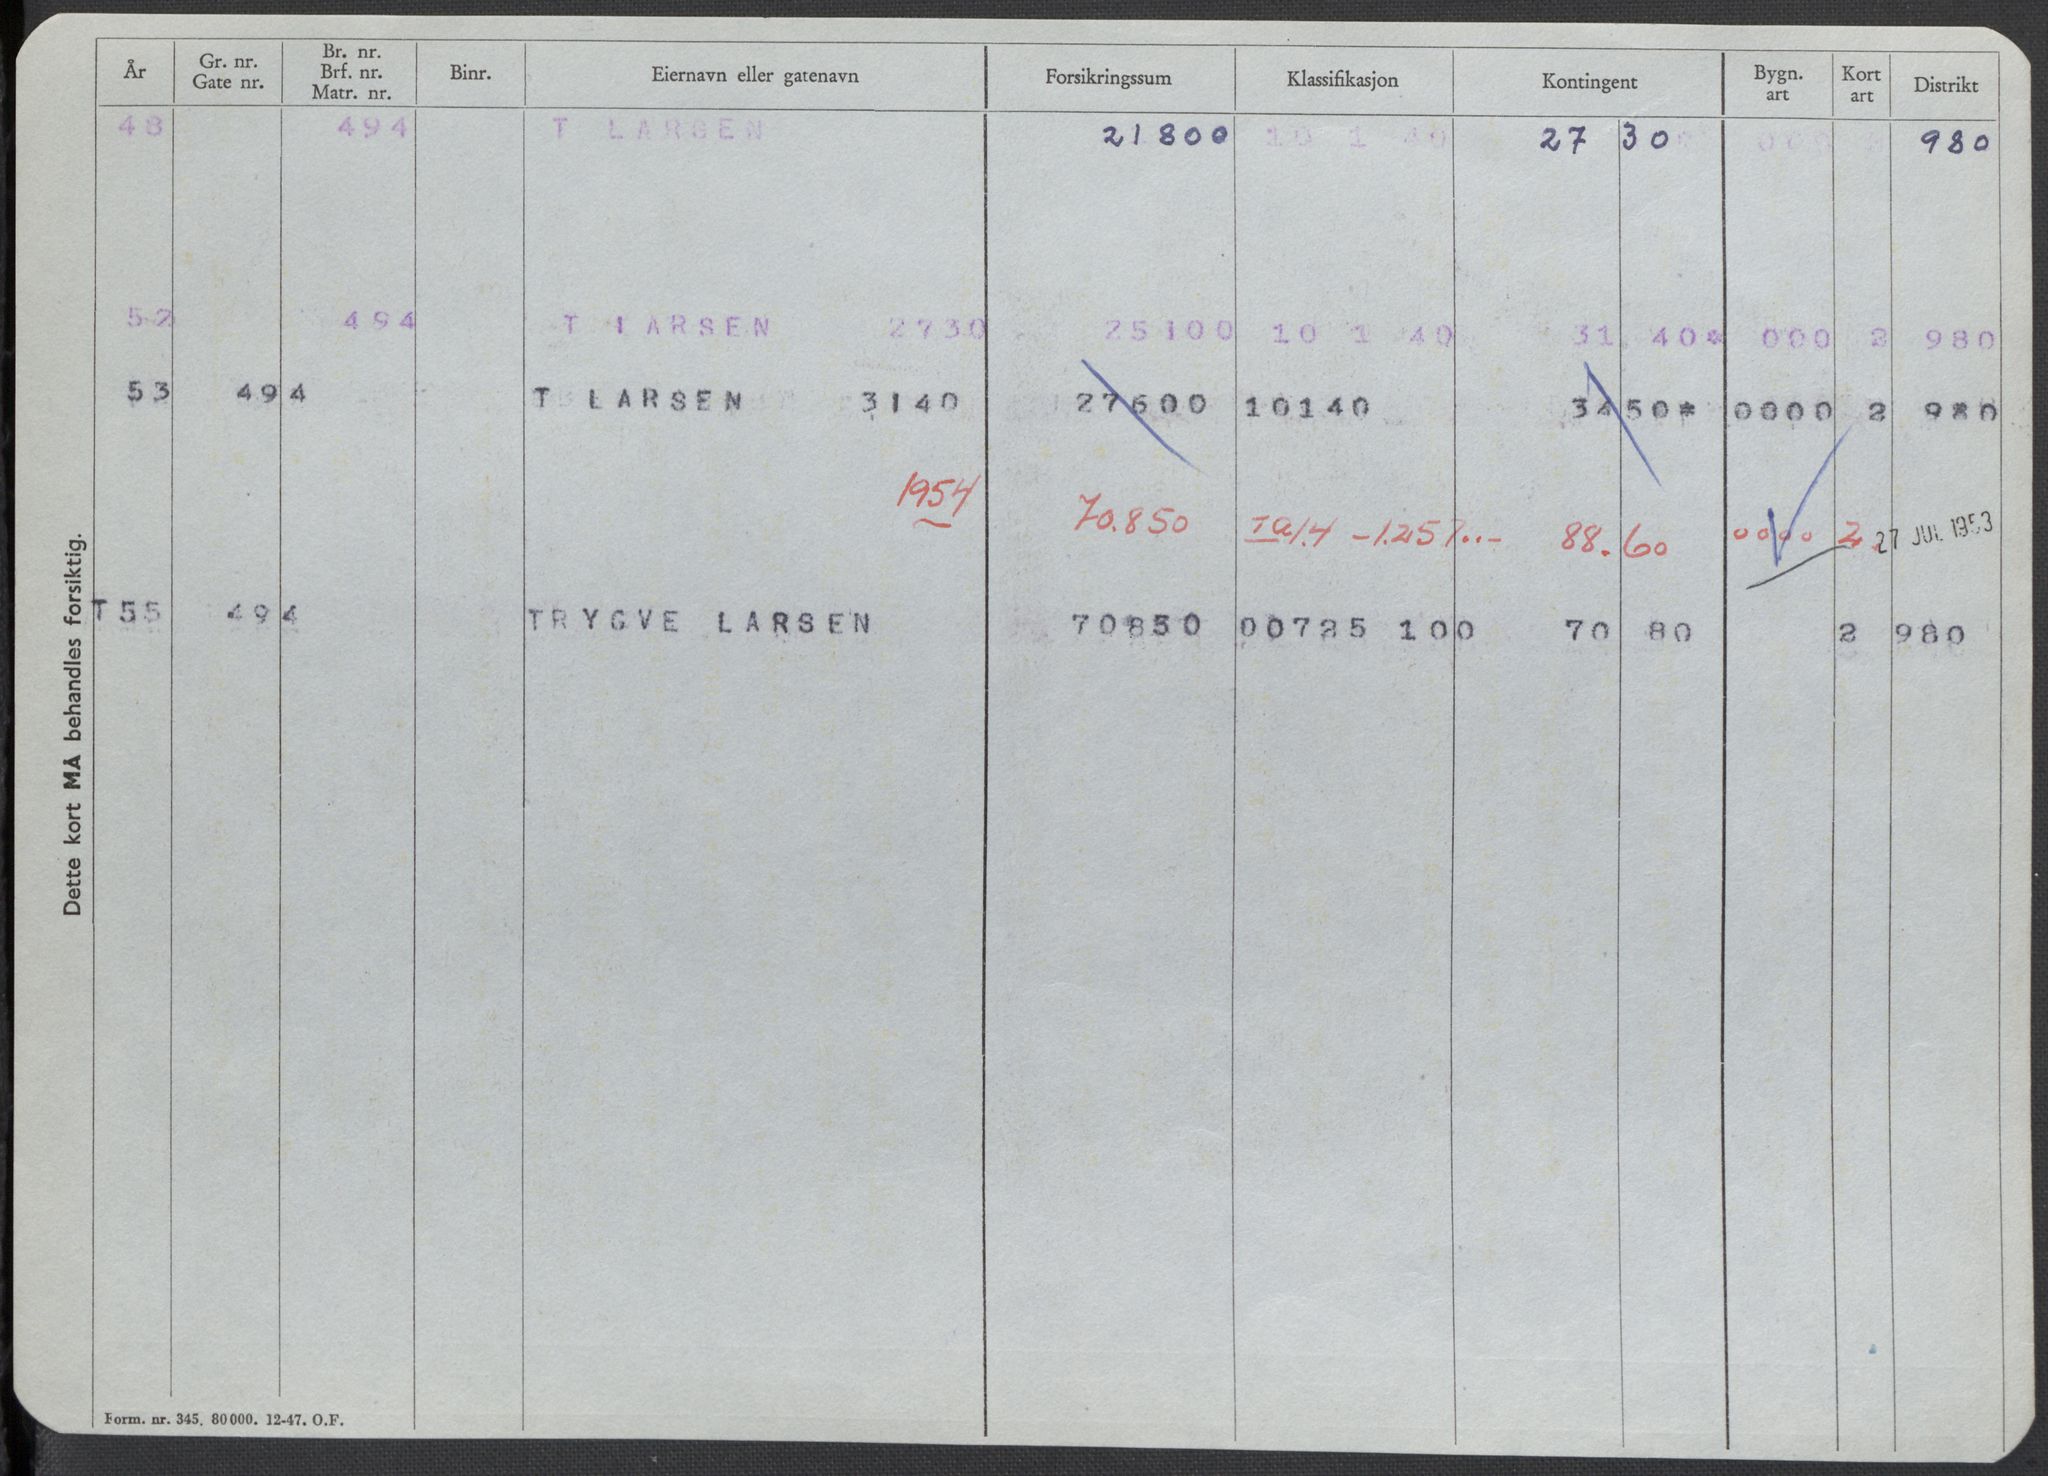 År Gr. nr. Gate nr. Br. nr. Brf. nr. Matr. nr. Binr. Eiernavn eller gatenavn Forsikringssum Klassifikasjon Kontingent Bygn. art Kort art Distrikt
48 494 T LARSEN 21800 10 1 40 27 30 000 2 980
52 494 T LARSEN 2730 25100 10 1 40 31 40* 000 2 980
53 494 T LARSEN 3140 27600 10140 3450* 0000 2 980
1954 70.850 88.60 0000 2 27 JUL 1953
T55 494 TRYGVE LARSEN 70850 00725 100 70 80 2 980
Dette kort MÅ behandles forsiktig.
Form. nr. 345. 80000. 12-47. O.F.